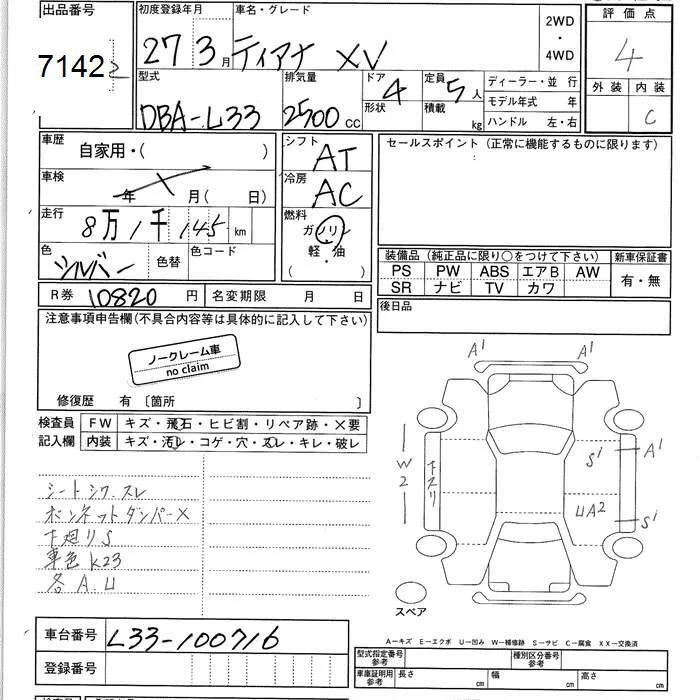 出品番号 初度登録年月 車名・グレード 評価点
7142 27 3月 ティアナ XV 2WD・4WD 4
型式 排気量 ドア 4 形状 定員 5人 積載 kg ディーラー・並行 外装 内装
DBA-L33 2500cc モデル年式 年 C
ハンドル 左・右
車歴 自家用・( ) シフト AT セールスポイント(正常に機能するものに限ります)
車検 年 月(日) 冷房 AC
走行 8万1千145km 燃料 ガソリン
軽・油
( )
色 シルバー 色替 色コード 装備品(純正品に限り○をつけて下さい) 新車保証書
PS PW ABS エアB AW 有・無
SR ナビ TV カワ
R券 10820円 名変期限 月 日 後日品
注意事項申告欄(不具合内容等は具体的に記入して下さい)
ノークレーム車
no claim
修復歴 有〔箇所 〕
検査員 FW キズ・飛石・ヒビ割・リペア跡・×要
記入欄 内装 キズ・汚レ・コゲ・穴・スレ・キレ・破レ
A1 A1
S1 A1
W2 下スリ
UA2 S1
シートシワ.スレ
ボンネットダンパー×
下廻りS
車色K23
各A.U
スペア
車台番号 L33-100716
登録番号
A-キズ E-エクボ U-凹み W-補修跡 S-サビ C-腐食 XX-交換済
型式指定番号 参考 種別区分番号 参考
車庫証明用 参考 長さ cm 幅 cm 高さ cm